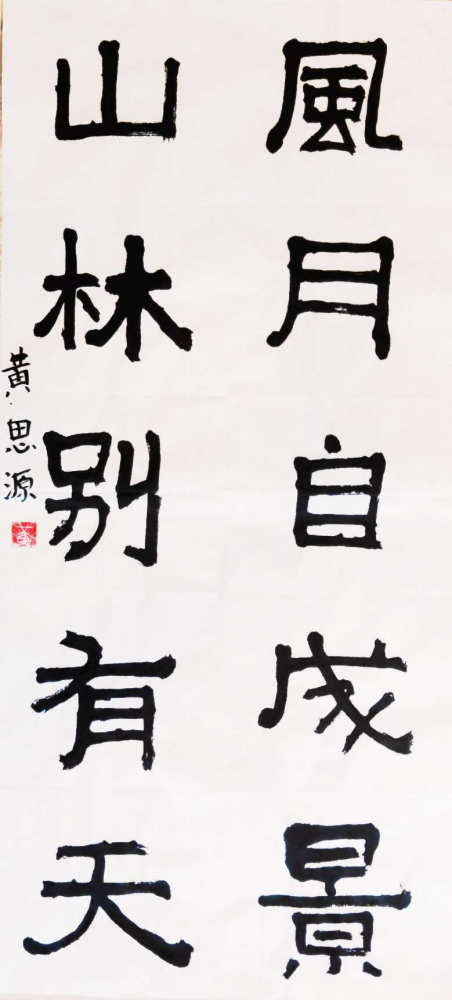 風月自成景
山林别有天
黄思源